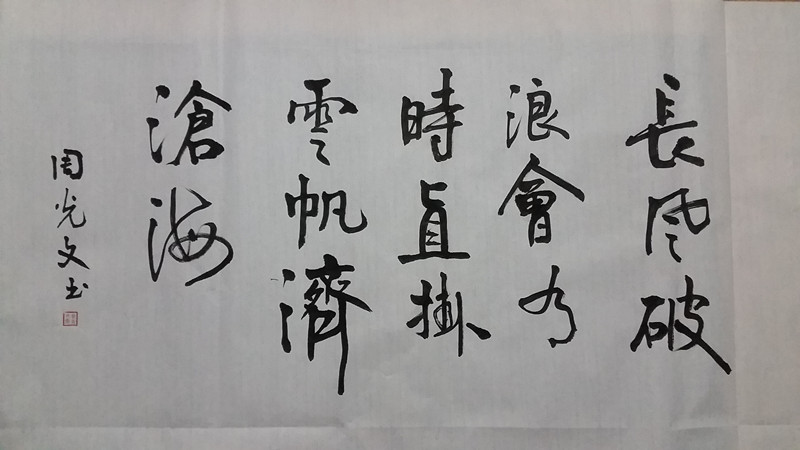 長風破
浪會有
時直掛
雲帆濟
滄海
周光文書